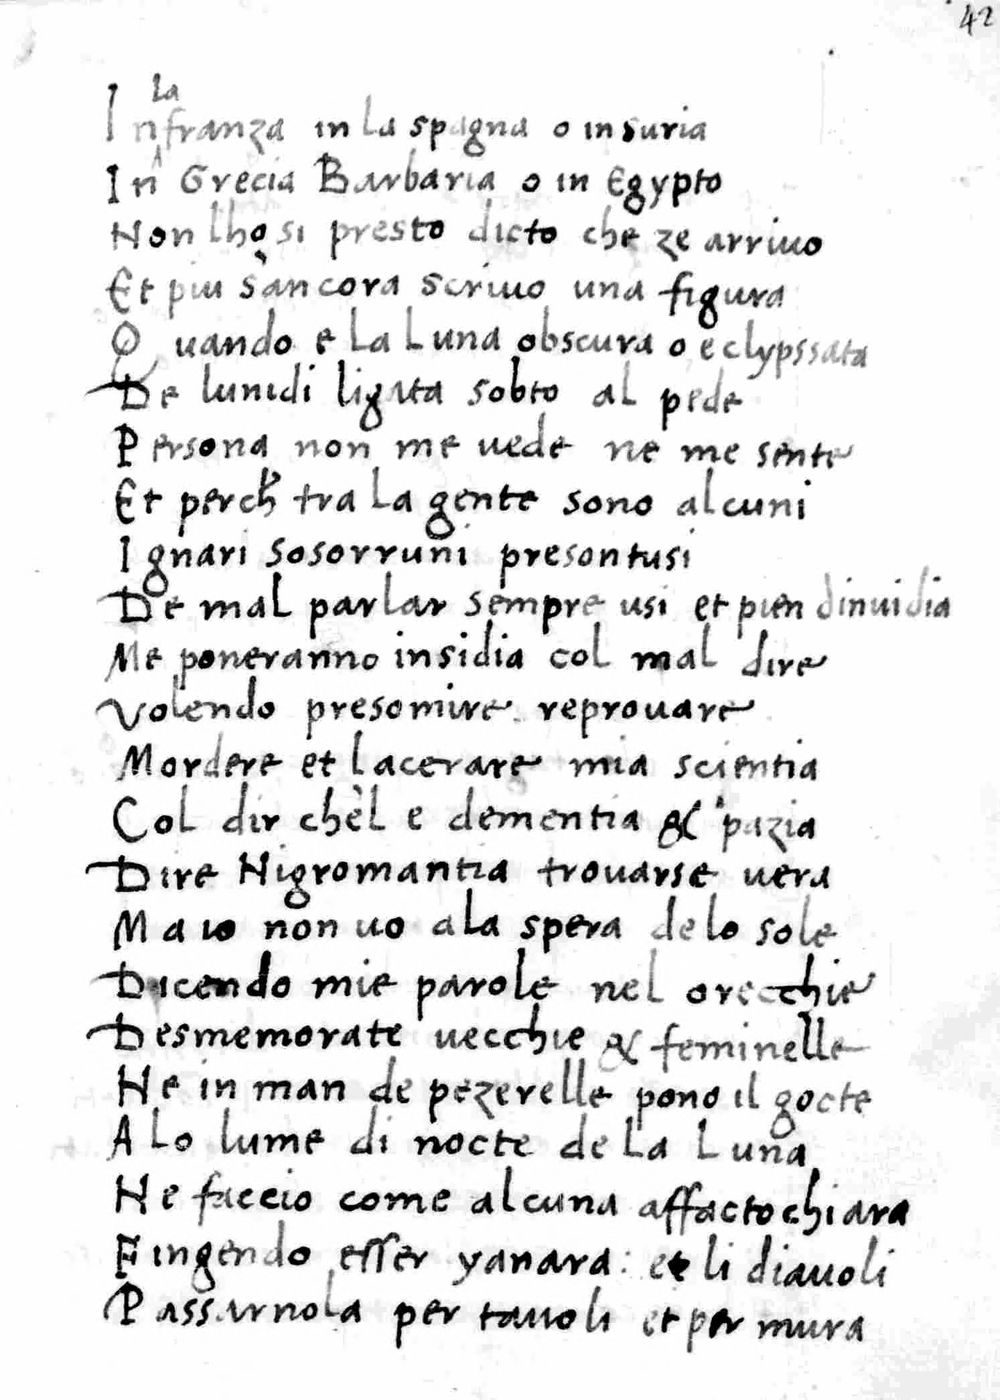 42
In la franza in la spagna o in suria
In Grecia Barbaria o in Egypto
Non lho si presto dicto che ze arriuo
Et piu s'ancora scriuo una figura
Quando e la Luna obscura o eclypssata
De lunidi ligata sobto al pede
Persona non me uede ne me sente
Et perch tra la gente sono alcuni
Ignari sosorruni presontusi
De mal parlar sempre usi et pien dinuidia
Me poneranno insidia col mal dire
Volendo presomire reprouare
Mordere et lacerare mia scientia
Col dir chèl e dementia & pazia
Dire Nigromantia trouarse uera
Ma io non uo a la spera de lo sole
Dicendo mie parole nel orecchie
Desmemorate uecchie & feminelle
Ne in man de pezerelle pono il gocte
A lo lume di nocte de la Luna
Ne faccio come alcuna affactochiara
Fingendo esser yanara : et li diauoli
Passarnola per tauoli et per mura